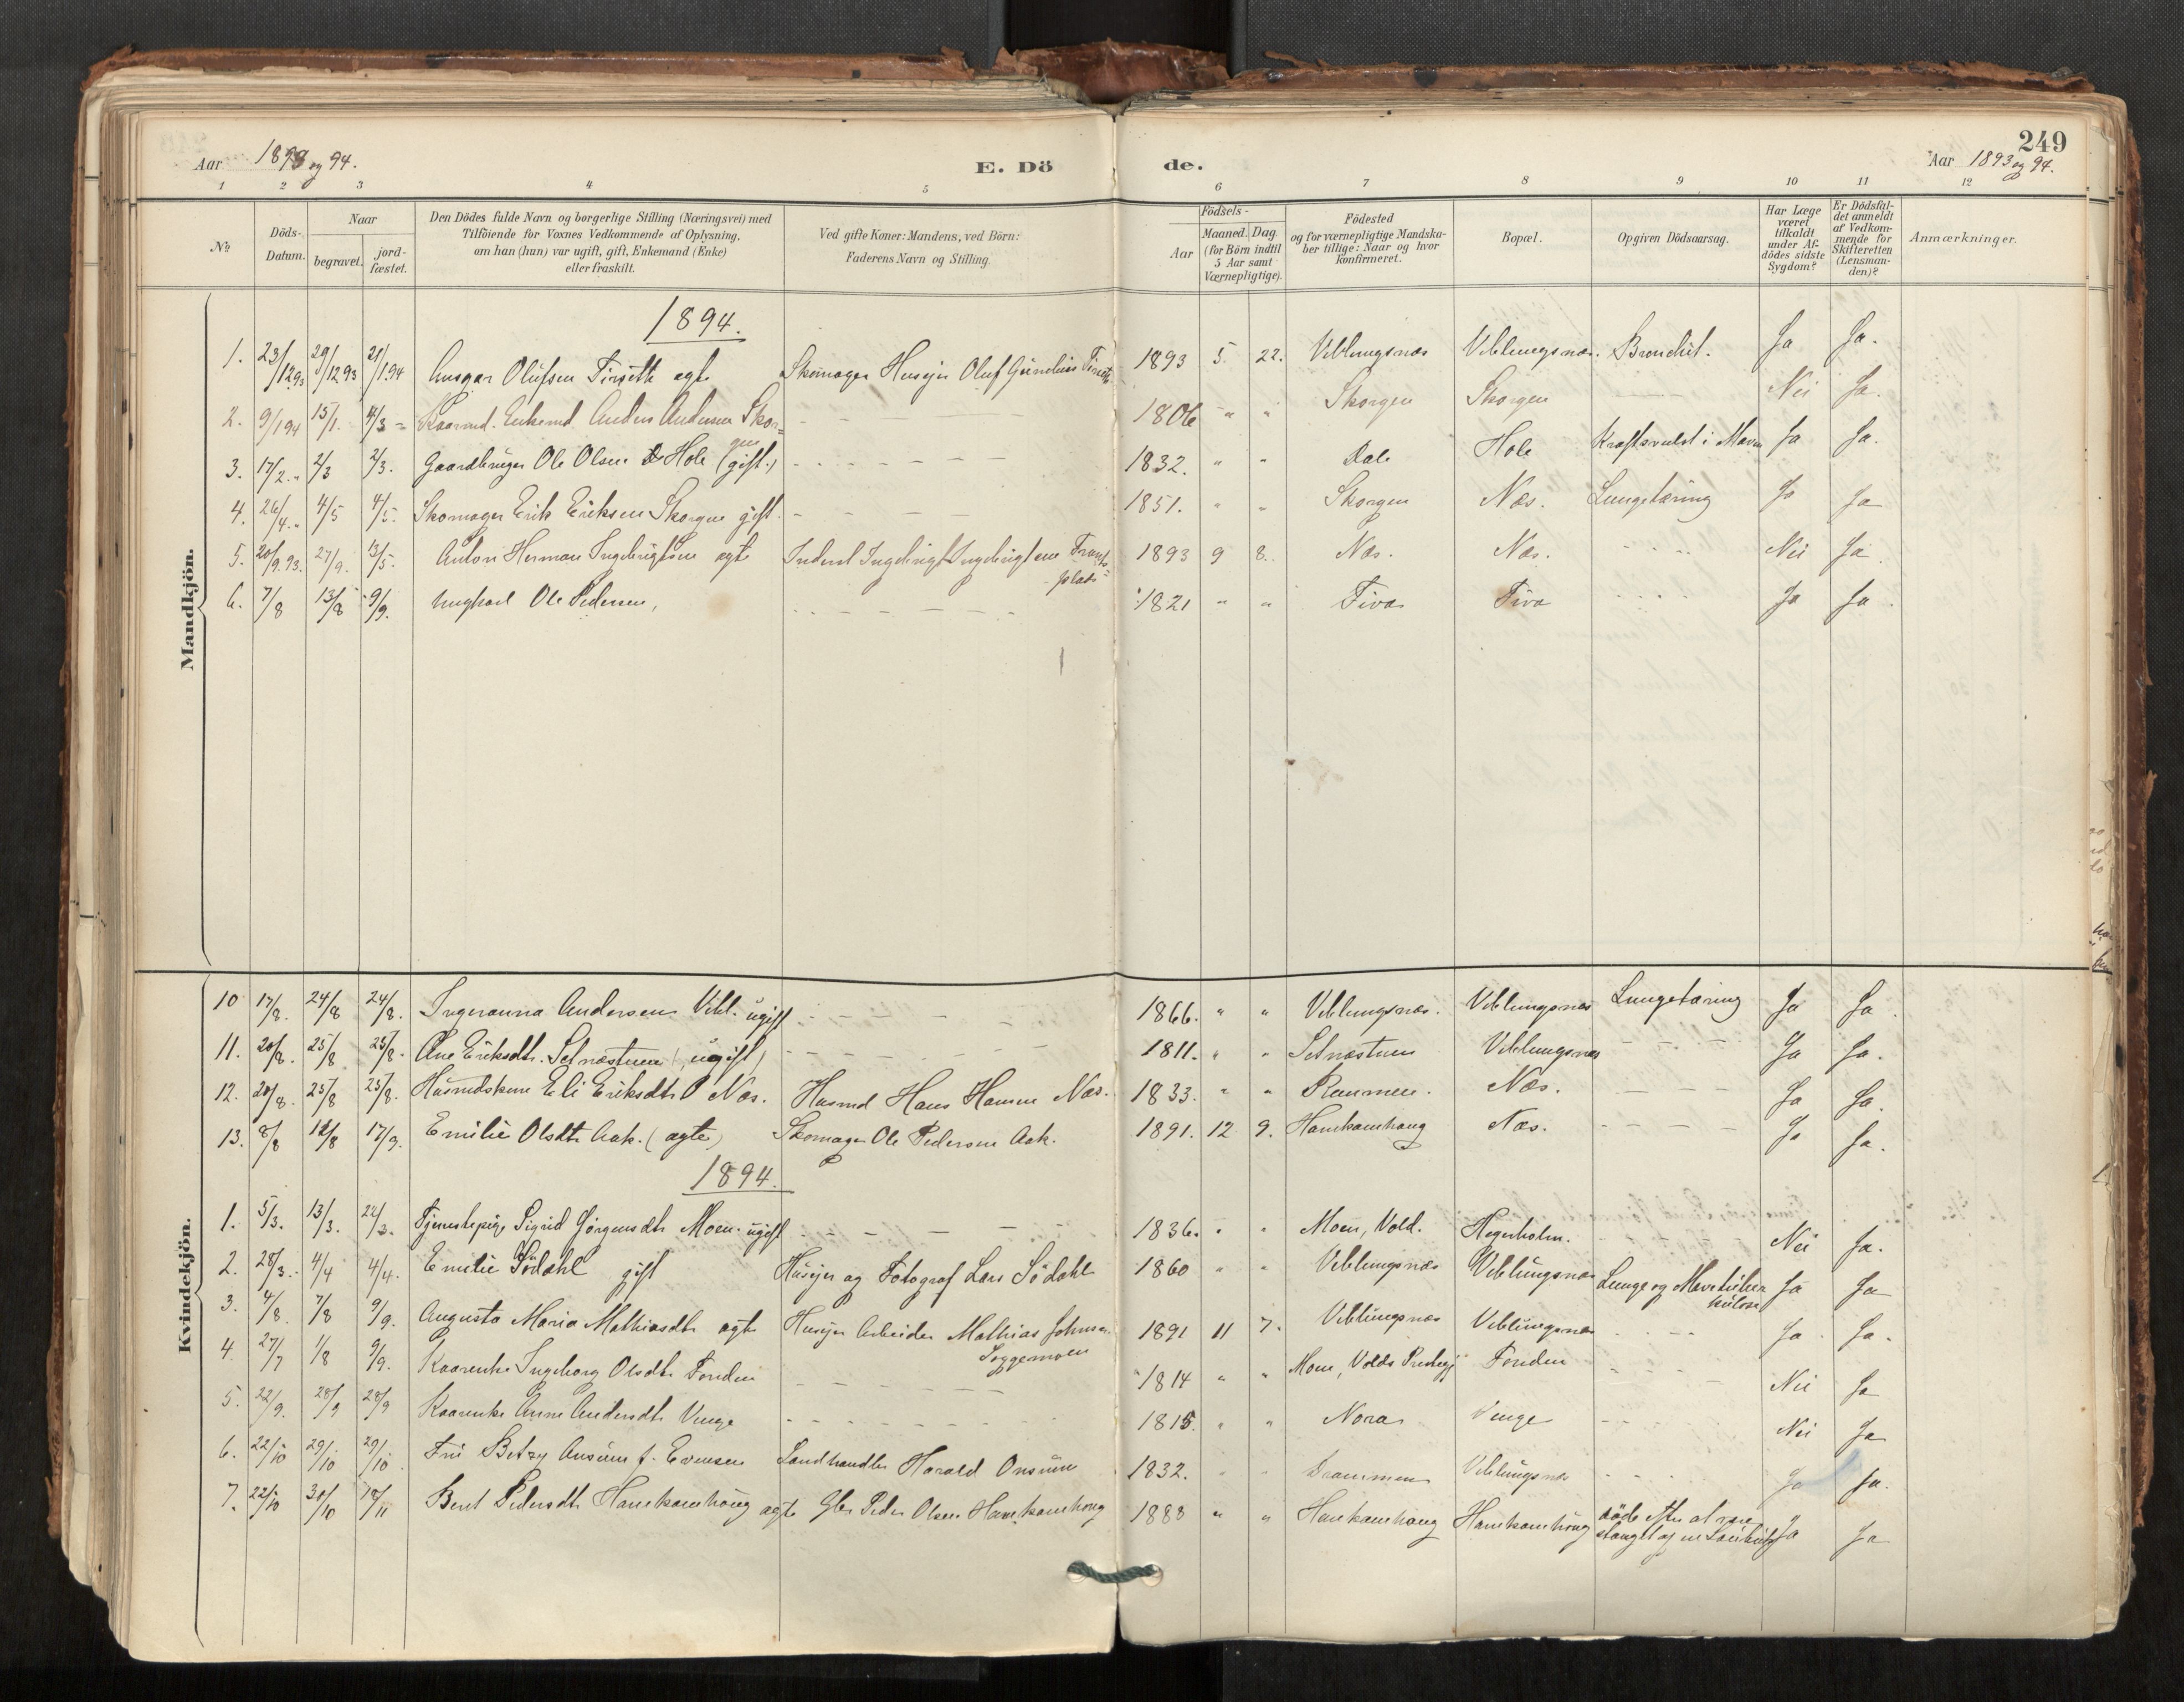 249
Aar 1893 og 94.
E. Dö de.
Aar 1893 og 94.
1 2 3 4 5 6 7 8 9 10 11 12
No
Döds-Datum.
Naar
begravet.
jord-fæstet.
Den Dödes fulde Navn og borgerlige Stilling (Næringsvei) med
Tilföiende for Voxnes Vedkommende af Oplysning,
om han (hun) var ugift, gift, Enkemand (Enke)
eller fraskilt.
Ved gifte Koner: Mandens, ved Börn:
Faderens Navn og Stilling.
Födsels-
Aar
Maaned. Dag.
(for Börn indtil
5 Aar samt
Værnepligtige).
Födested
og for værnepligtige Mandska-
ber tillige: Naar og hvor
konfirmeret.
Bopæl.
Opgiven Dödsaarsag.
Har Læge
været
tilkaldt
under Af-
dödes sidste
Sygdom?
Er Dödsfal-
det anmeldt
af Vedkom-
mende for
Skifteretten
(Lensman-
den)?
Anmærkninger.
Mandkjön.
1894.
1. 23/12 93 29/12 93 21/1 94 Ansgar Olufsen Tirseth ægte Skomager Husejer Oluf 1893 5 22. Veblungsnæs Veblungsnæs. Bronchit. Ja Ja.
2. 9/1 94 15/1. 4/3 Kaarmd. Enkemd. Anders Andersen Skorgen 1806 " " Skorgen Skorgen Nei Ja.
3. 17/2 " 2/3 2/3. Gaardbruger Ole Olsen Hole (gift.) 1832. " " Dale Hole Kræftsvulst i Maven Ja Ja.
4. 26/4 " 4/5 4/5. Skomager Erik Eriksen Skorgen gift. 1851. " " Skorgen Næs. Lungetæring Ja Ja
5. 20/9 93. 27/9. 13/5. Anton Herman Ingebrigtsen ægte Inderst Ingebrigt Ingebrigtsen 1893 9 8. Næs. Næs. Nei Ja.
plads
6. 7/8 13/8 9/9. Ungkarl Ole Pedersen, 1821 " " Fiva Fiva Ja Ja.
Kvindekjön.
10 17/8. 24/8 24/8. Ingeranna Andersen Vebl. ugift 1866. " " Veblungsnæs. Veblungsnæs Lungetæring Ja Ja
11. 20/8. 25/8 25/8. Ane Eriksdtr. Setnæstuen (ugift) 1811. " " Setnæstuen Veblungsnæs Ja Ja.
12. 20/8. 25/8 25/8. Husmdskone Eli Eriksdtr Næs. Husmd Hans Hansen Næs. 1833. " " Næs. Ja Ja.
13. 8/8 12/8 17/9. Emilie Olsdtr Aak. (ægte) Skomager Ole Pedersen Aak. 1891. 12 9. Hamkamhaug Næs. Ja Ja.
1894.
1. 5/3. 13/3. 22/3. Tjenestepige Sigrid Jörgensdtr Moen. ugift 1836. " " Moen, Vold. Hegerholm. Nei Ja.
2. 28/3. 4/4 4/4. Emilie Södahl gift Husejer og Fotograf Lars Södahl 1860 " " Veblungsnæs Veblungsnæs Lunge og Mavetuber- Ja Ja
kulose
3. 4/8. 7/8 9/9. Augusta Maria Mathiasdtr ægte Husejer Arbeider Mathias Johnsen 1891 11 7. Veblungsnæs Veblungsnæs Ja. Ja.
Soggemoen
4. 27/7 1/8 9/9. Kaarenke Ingeborg Olsdtr Fonden 1814 " " Moen, Volds Fonden Nei Ja
5. 22/9. 28/9 28/9 Kaarenke Anne Andersdtr Venge 1815. " " Nora Venge Nei Ja
6. 22/10 29/10 29/10 Fru Betzy Onsum f. Evensen Landhandler Harald Onsum 1832. " " Drammen Veblungsnæs Ja Ja.
7. 22/10 30/10 18/11 Berit Pedersdtr Hamkamhaug ægte Gbr. Peder Olsen Hamkamhaug 1883 " " Hamkamhaug Hamkamhaug döde efter at være Ja Ja
stanget af en